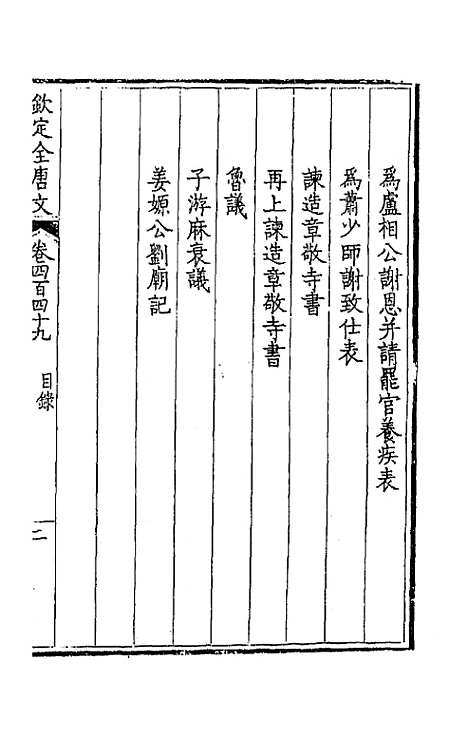 爲盧相公謝恩并請罷官養疾表
爲蕭少師謝致仕表
諫造章敬寺書
再上諫造章敬寺書
魯議
子游麻衰議
姜嫄公劉廟記
欽定全唐文 卷四百四十九 目錄 二